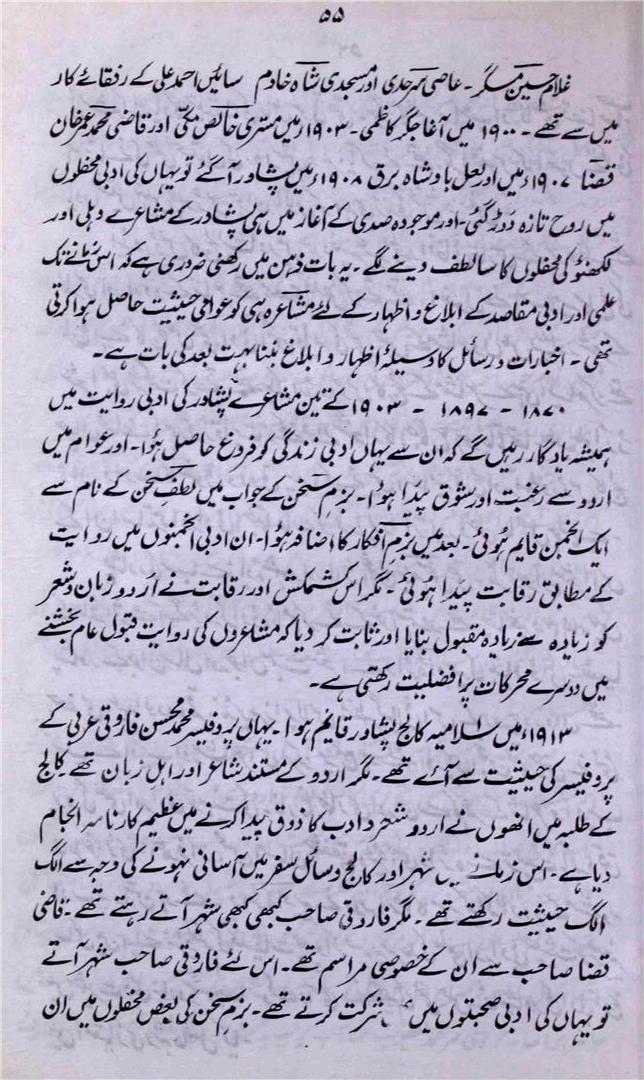 ۵۵
غلام حسین مسگر۔ عاصی سرحدی اور مسجدی شاہ خادم سائیں احمد علی کے رفقائے کار
میں سے تھے۔ ۱۹۰۰ میں آغا جگر کاظمی۔ ۱۹۰۳ء میں مستری خالص مکی اور قاضی محمد عمر خان
قضا ۱۹۰۷ء میں اور لعل بادشاہ برق ۱۹۰۸ء میں پشاور آ گئے تو یہاں کی ادبی محفلوں
میں روح تازہ دوڑ گئی۔ اور موجودہ صدی کے آغاز میں ہی پشاور کے مشاعرے دہلی اور
لکھنؤ کی محفلوں کا سا لطف دینے لگے۔ یہ بات ذہن میں رکھنی ضروری ہے کہ اس زمانے تک
علمی اور ادبی مقاصد کے ابلاغ و اظہار کے لئے مشاعرہ ہی کو عوامی حیثیت حاصل ہوا کرتی
تھی۔ اخبارات و رسائل کا وسیلۂ اظہار و ابلاغ بننا بہت بعد کی بات ہے۔
۱۸۷۰ - ۱۸۹۷ - ۱۹۰۳ کے تین مشاعرے پشاور کی ادبی روایت میں
ہمیشہ یادگار رہیں گے کہ ان سے یہاں ادبی زندگی کو فروغ حاصل ہؤا۔ اور عوام میں
اردو سے رغبت اور شوق پیدا ہوا۔ بزم سخن کے جواب میں لطف سخن کے نام سے
ایک انجمن قایم ہوئی۔ بعد میں بزم افکار کا اضافہ ہؤا۔ ان ادبی انجمنوں میں روایت
کے مطابق رقابت پیدا ہوئی۔ مگر اس کشمکش اور رقابت نے اردو زبان و شعر
کو زیادہ سے زیادہ مقبول بنایا اور ثابت کر دیا کہ مشاعروں کی روایت قبول عام بخشنے
میں دوسرے محرکات پر افضلیت رکھتی ہے۔
۱۹۱۳ء میں اسلامیہ کالج پشاور قایم ہوا۔ یہاں پروفیسر محمد محسن فاروقی عربی کے
پروفیسر کی حیثیت سے آئے تھے۔ مگر اردو کے مستند شاعر اور اہل زبان تھے کالج
کے طلبہ میں انھوں نے اردو شعر و ادب کا ذوق پیدا کرنے میں عظیم کارنامہ انجام
دیا ہے۔ اس زمانے میں شہر اور کالج وسائل سفر میں آسانی نہونے کی وجہ سے الگ
الگ حیثیت رکھتے تھے۔ مگر فاروقی صاحب کبھی کبھی شہر آتے رہتے تھے۔ قاضی
قضا صاحب سے ان کے خصوصی مراسم تھے۔ اس لئے فاروقی صاحب شہر آتے
تو یہاں کی ادبی صحبتوں میں شرکت کرتے تھے۔ بزم سخن کی بعض محفلوں میں ان